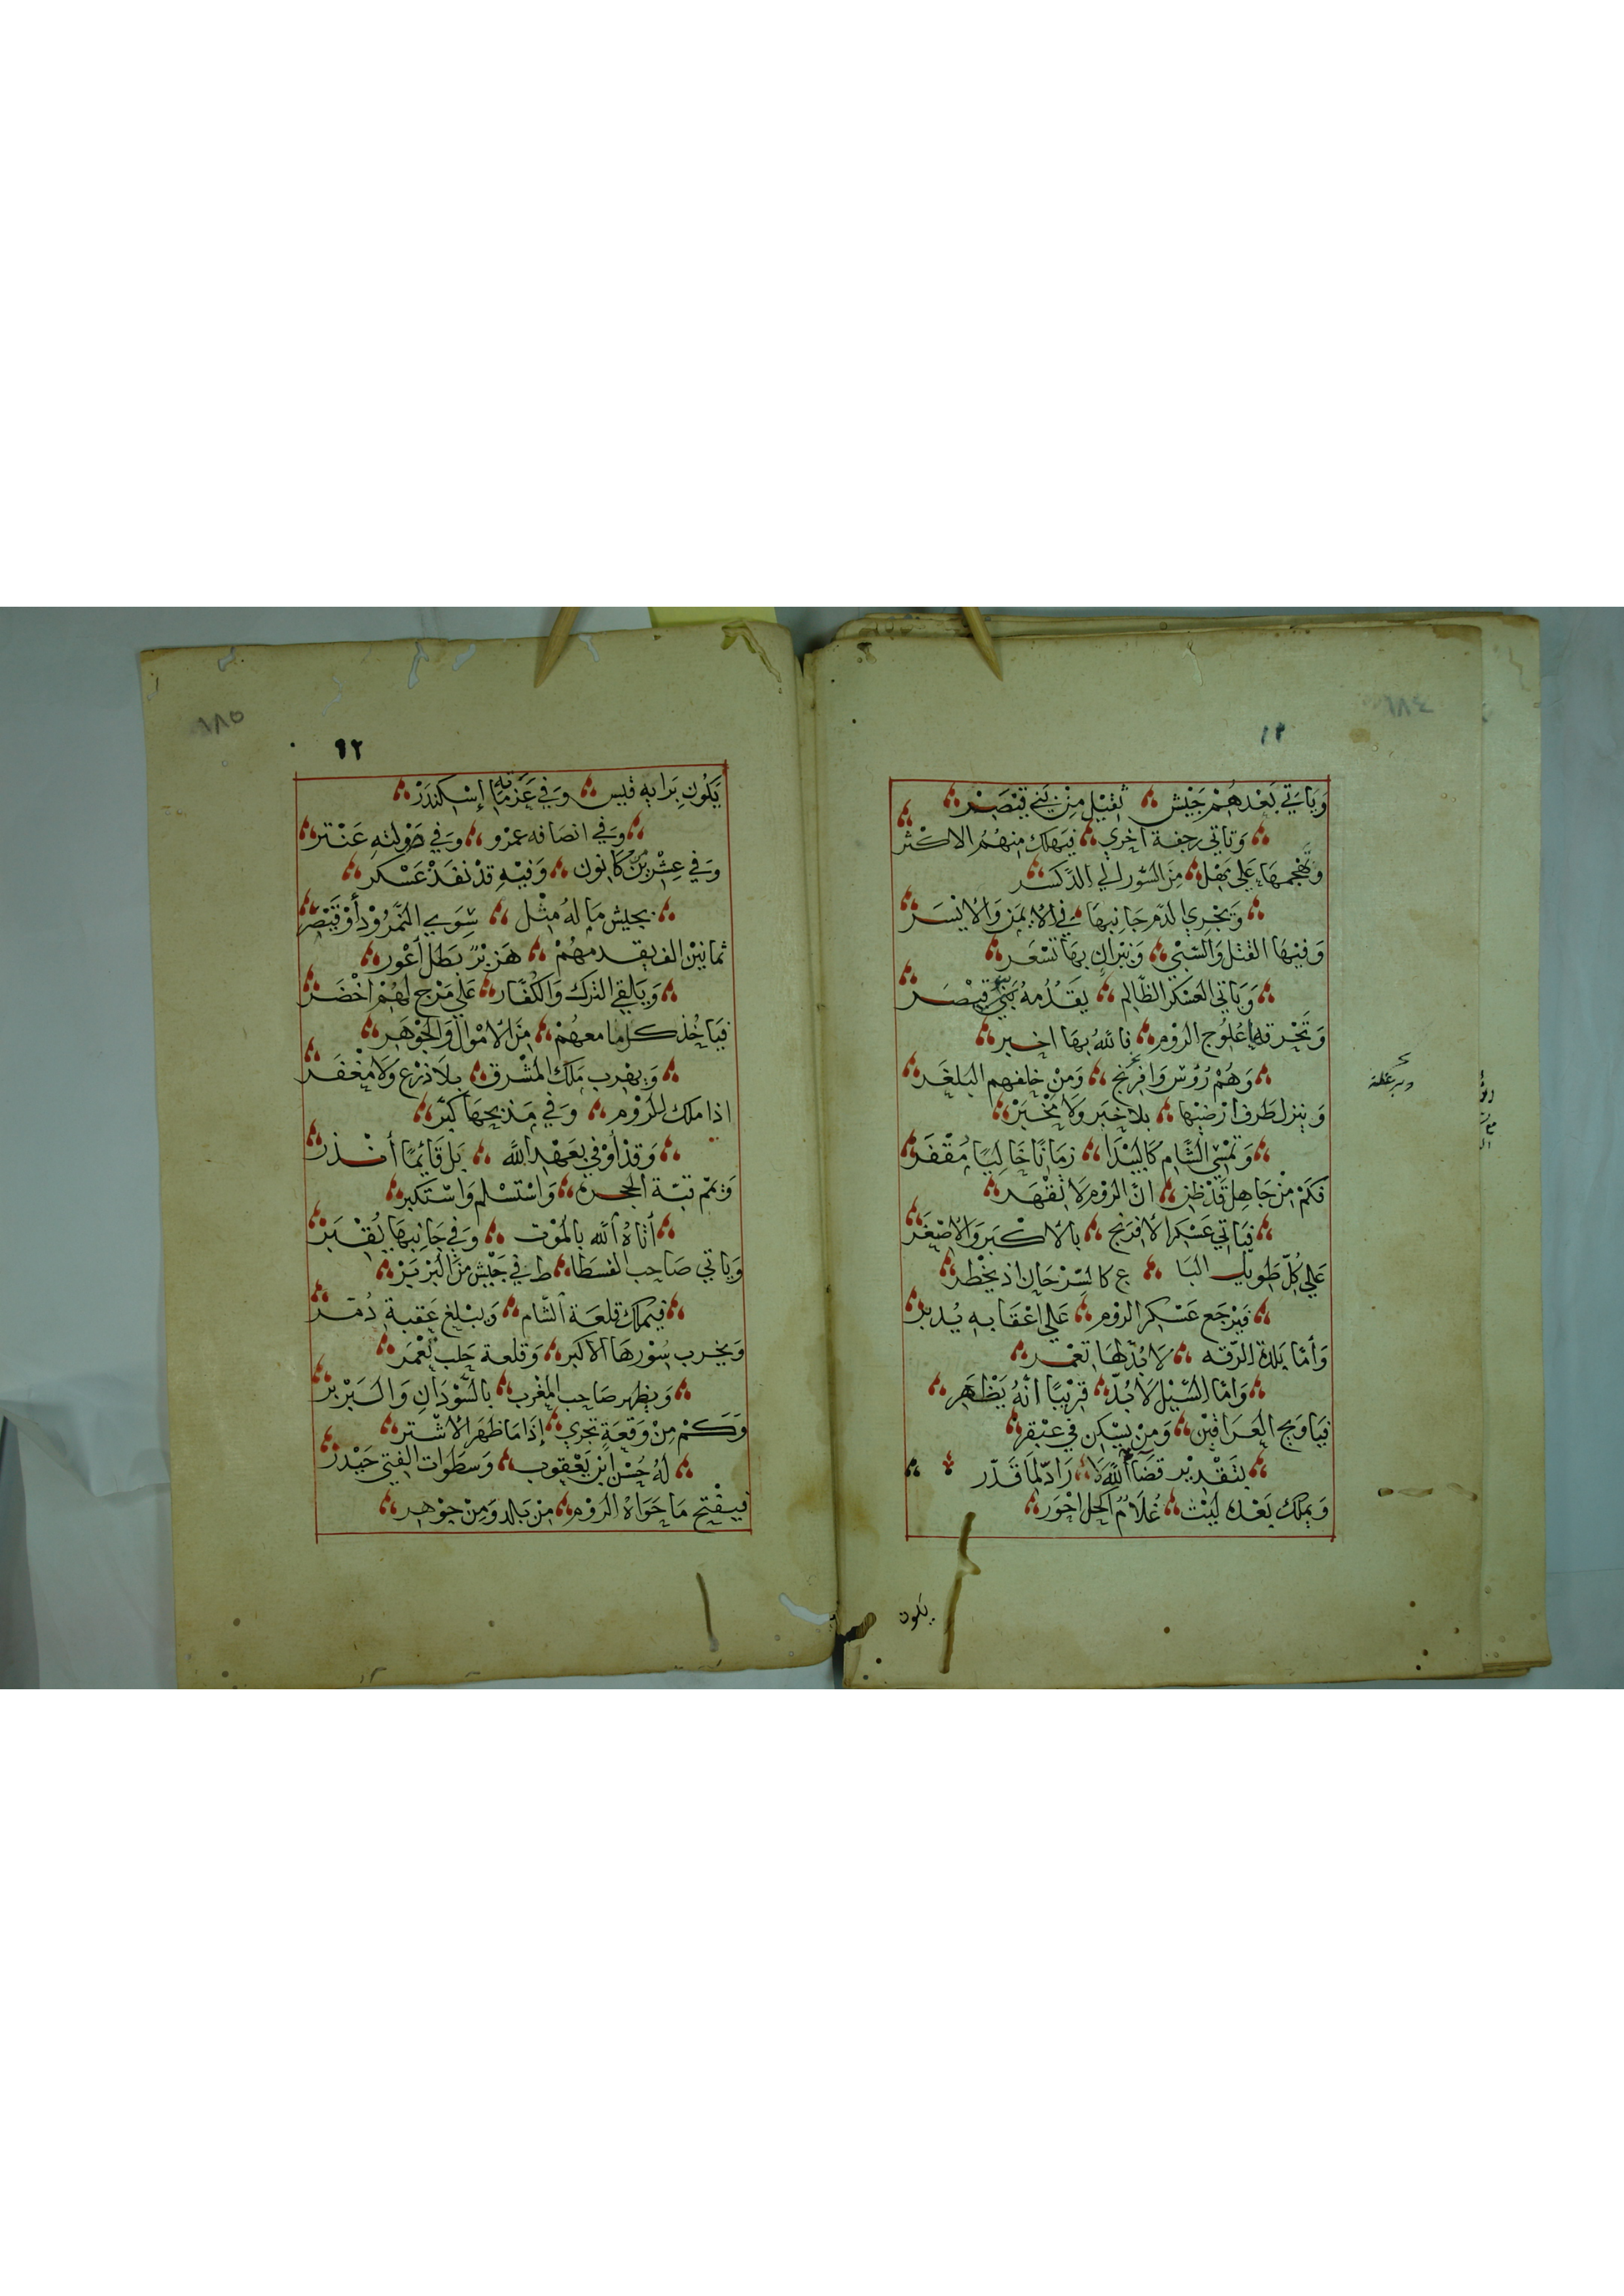 ١٨٤
١٢
وَيَاتي بَعْدهُمْ جَيْش ثقيْل مِنْ بَني قيْصَرْ
وَتاتي رجفة اخري فيَهلك منهُمُ الاكثر
وَتهْجمهَا عَلي مَهْل مِنَ السّور الي الدّكسر
وَتجْري الدّم جَانبهَا في الايمَنِ وَالايْسَر
وَفيْهَا القتل وَالسّبْي وَنيْرَان بهَا تسْعَر
وَيَاتي العَسْكر الظّالِم يقدُمهُ بَني قيْصَر
وَتحْرقهَا عُلوج الرّوْم فالله بهَا اخبر
وَهُمْ رُوْس وَافرَنج وَمِنْ خلفهم البَلغَر
وَينزل طَرف ارْضيْهَا بلا خبَر وَلا مخْبَرْ
وَتمْسِي الشّام كالبَيْدَا زمَانًا خاليًا مُقْفَر
فكمْ مِنْ جَاهِل قدْ ظن انّ الرّوْم لا تقْهَر
فيَاتي عَسْكر الافرَنج بالاكْبَر وَالاصْغَر
عَلي كلّ طَويل البَا ع كالسِّرْحَان اذ يخْطر
فيَرْجَع عَسْكر الرّوْم عَلي اعْقابهِ يُدبر
وَأمّا بَلدة الرّقه لا بُدّ لهَا تعْمر
وَامّا السّيْل لا بُدّ قريْبًا أنّهُ يَظْهَر
فيَا وَيح العَرَاقيْن وَمَنْ يسْكن في عَبْقر
بتقْديْر قضَآءُ الله لا رَادّ لمَا قَدّر
وَيملك بَعْده ليْث غُلامٌ اكحل احْوَر
يكون
١٨٥
٩٢
يَكُون برَايهِ قيس وَفي عَزمَاتهِ إسْكندَرْ
وَفي انصَافه عمْرو وَفي صَوْلتهِ عَنْتر
وَفي عِشْريْن منْ كانون وَفيْهِ قدْ نفذْ عَسْكر
بجيش مَا لهُ مثْل سِوَي النّمْرُوْد أوْ قيْصَر
ثمانيْن الف يقدمهُمْ هَزبْرٌ بَطَل أعْور
وَيَالقي الترك وَالكفّار عَلي مَرْج لهُمْ اخْضَر
فيَاخُذ كل ما معهُمْ مِنَ الامْوال وَالجَوْهَر
وَيهْرب مَلك المشْرق بلا دَرْع وَلا مغْفَر
اذا ملك للرّوْم وَفي مَذبحهَا كبّر
وَقدْ أوْفي بعَهْد الله بَل قايمًا أنْذر
وَيمّم قبّة الحجره وَاسْتسْلم وَاسْتكبر
أتاهُ الله بالمَوْت وَفي جَانبهَا يُقْبَر
وَياتي صَاحب الفسطَا ط في جَيْش مِنَ البَرْبَرْ
فيَملك قلعَة الشّام وَيبْلغ عَقبة دُمّر
وَيخرب سُوْرهَا الاكبَر وَقلعة حَلب تعْمَر
وَيظهر صَاحب المغْرب بالسّوْدَانِ وَالبَرْبر
وَكَمْ مِنْ وَقعَةٍ تجْري إذا مَا ظهَر الاشْتر
لهُ حُسْن ابْن يَعْقوب وَسطَوَات الفتي حَيْدر
فيفْتح مَا حَوَاهُ الرّوْم مِنْ بَالد وَمِنْ جوْهر